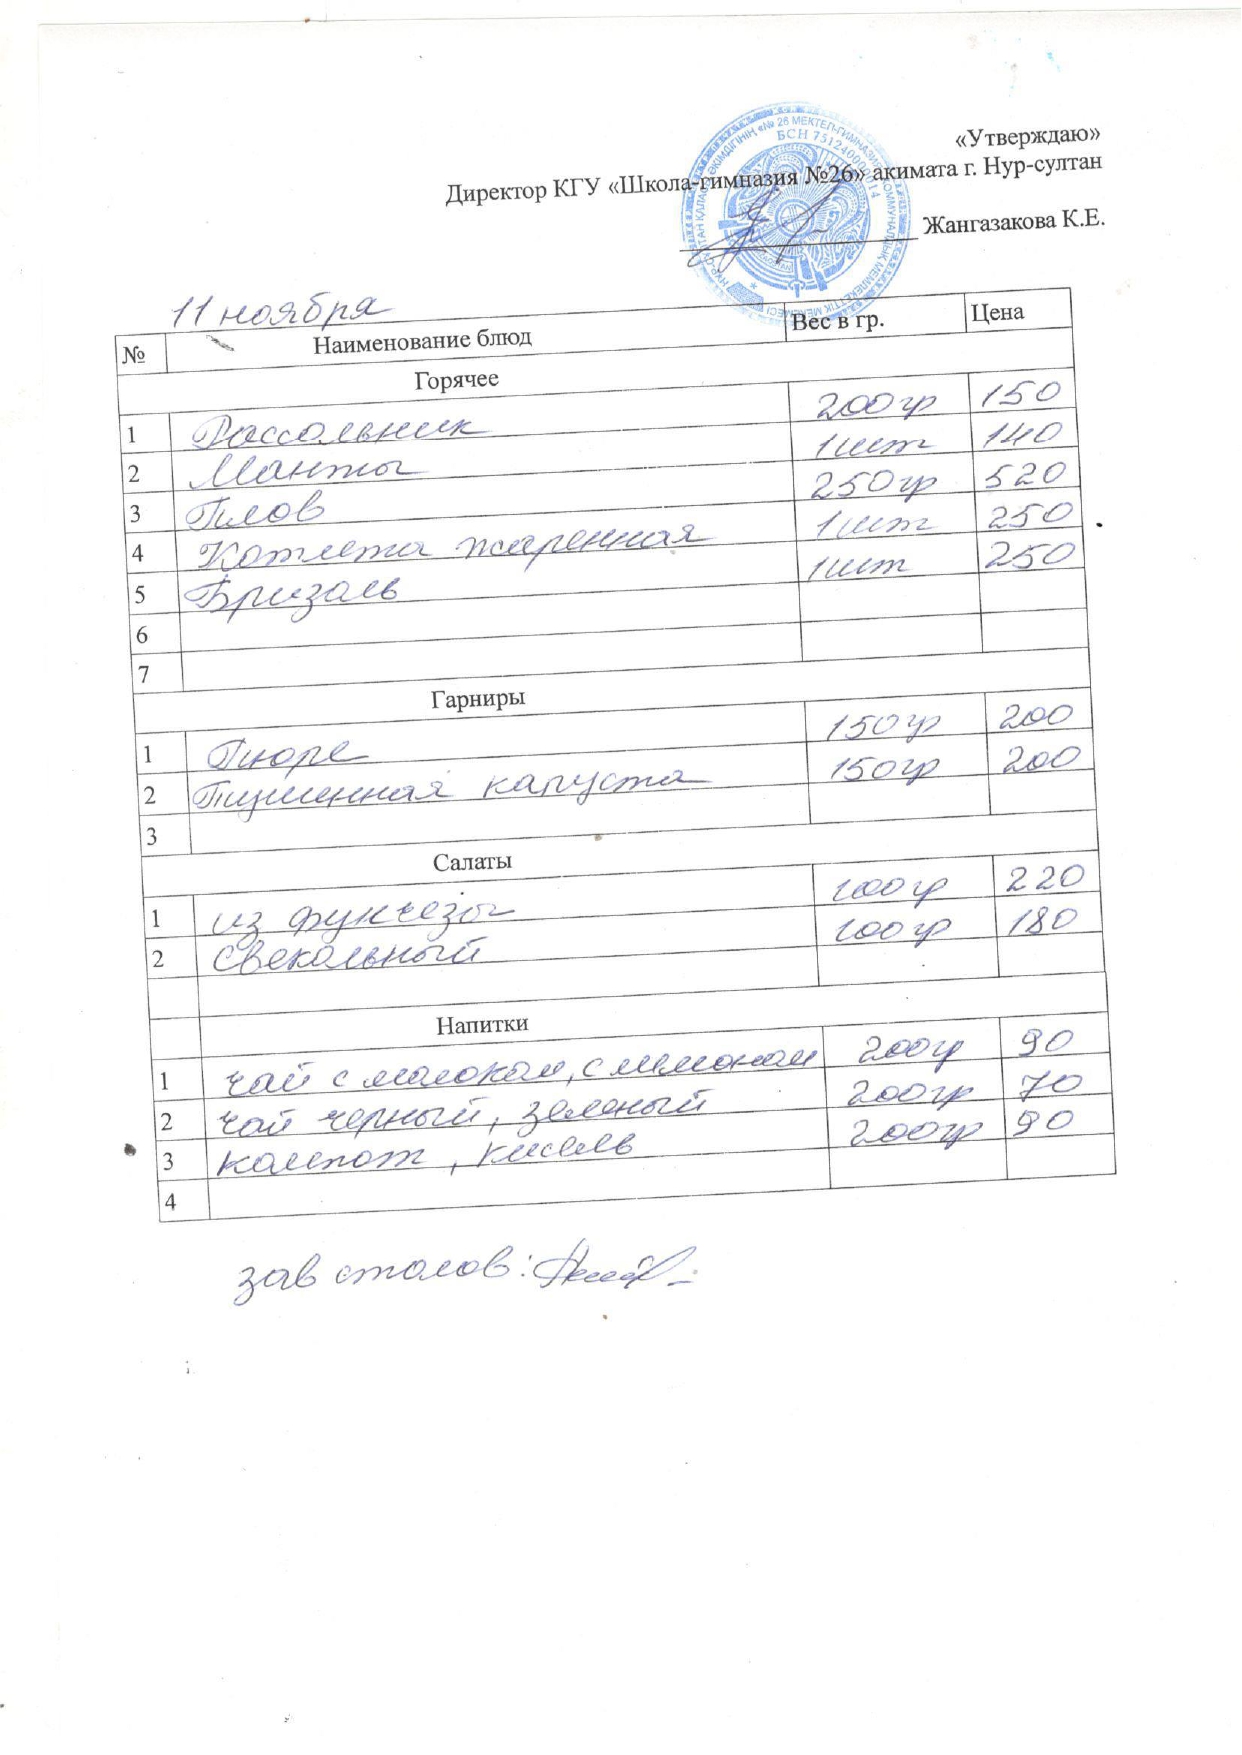 «Утверждаю»
Директор КГУ «Школа-гимназия №26» акимата г. Нур-султан
Жангазакова К.Е.
11 ноября
№ Наименование блюд Вес в гр. Цена
Горячее
1 Рассольник 200гр 150
2 Манты 1шт 140
3 Плов 250гр 520
4 Котлета жаренная 1шт 250
5 Бризоль 1шт 250
6
7
Гарниры
1 Пюре 150гр 200
2 Тушенная капуста 150гр 200
3
Салаты
1 из фунчезы 100гр 220
2 свекольный 100гр 180
Напитки
1 чай с молоком, с лимоном 200гр 90
2 чай черный, зеленый 200гр 70
3 компот, кисель 200гр 90
4
зав столов: